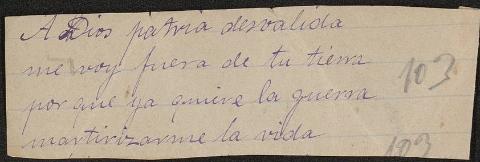 A Dios patria desvalida
me voy fuera de tu tierra
por que ya quiere la guerra
martirizarme la vida
103
103